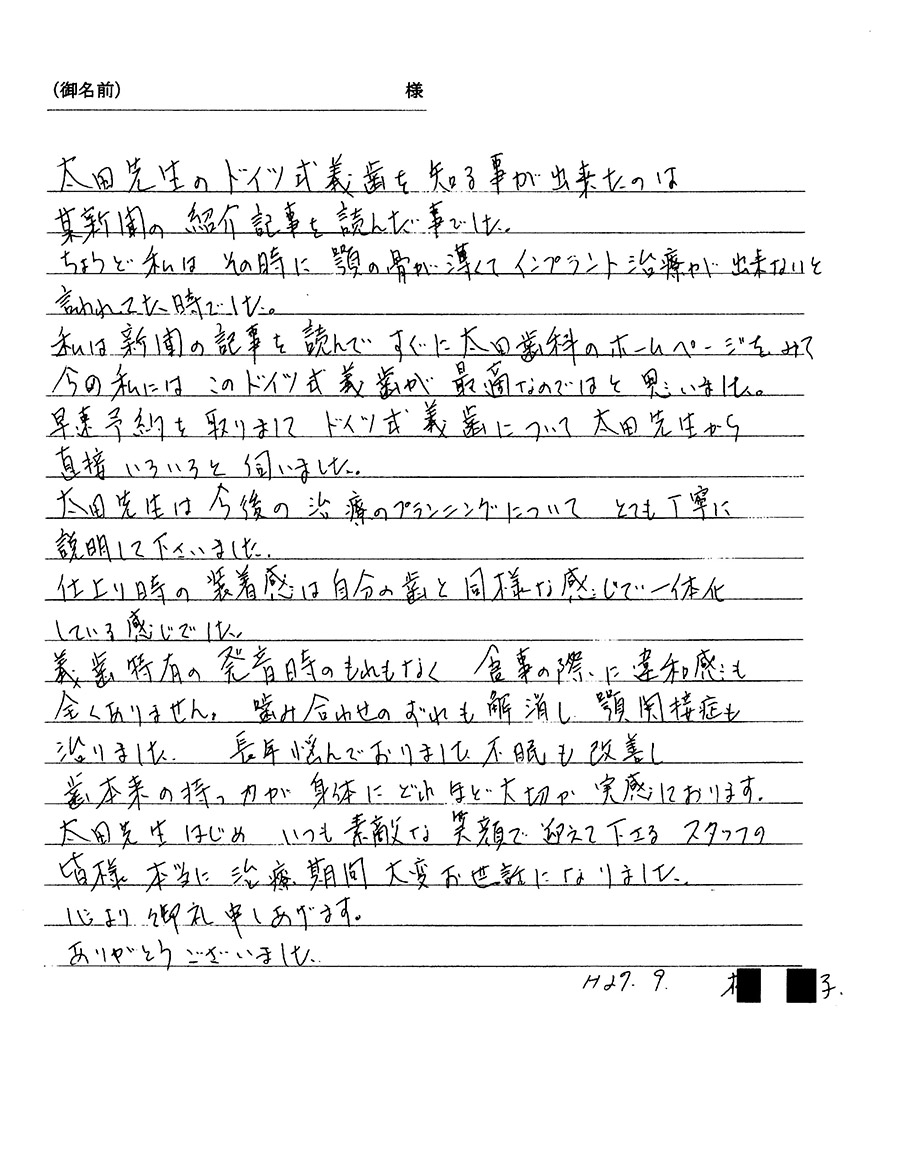 (御名前) 様
太田先生のドイツ式義歯を知る事が出来たのは
某新聞の紹介記事を読んだ事でした。
ちょうど私はその時に顎の骨が薄くてインプラント治療が出来ないと
言われてた時でした。
私は新聞の記事を読んですぐに太田歯科のホームページをみて
今の私にはこのドイツ式義歯が最適なのではと思いました。
早速予約を取りましてドイツ式義歯について太田先生から
直接いろいろと伺いました。
太田先生は今後の治療のプランニングについてとても丁寧に
説明して下さいました.
仕上り時の装着感は自分の歯と同様な感じで一体化
している感じでした。
義歯特有の発音時のもれもなく 食事の際に違和感も
全くありません。噛み合わせのずれも解消し顎関接症も
治りました. 長年悩んでおりました不眠も改善し
歯本来の持つ力が身体にどれほど大切か実感しております.
太田先生はじめ いつも素敵な笑顔で迎えて下さるスタッフの
皆様本当に治療期間大変お世話になりました.
心より御礼申しあげます。
ありがとうございました.
H27. 9. 子.